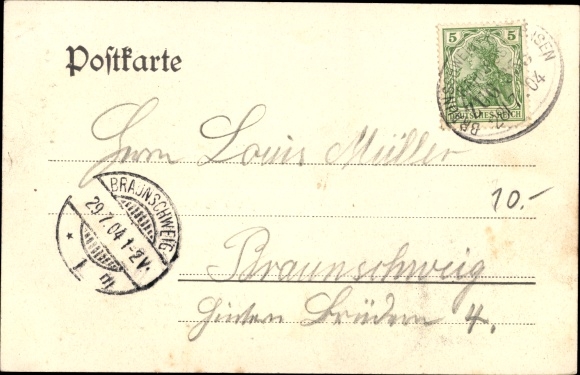 Postkarte
5 5
DEUTSCHES REICH
04
Herrn Louis Müller
10.-
BRAUNSCHWEIG
29.7.04.1-2V.
* 1 m
Braunschweig
Hintern Brüdern 4.